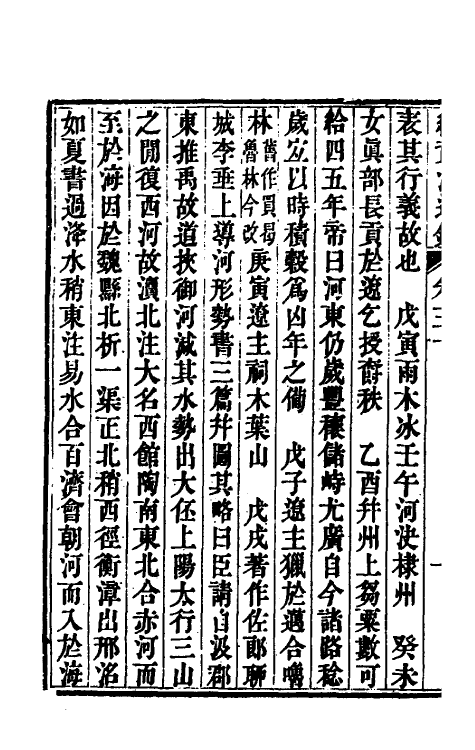 表其行義故也　戊寅雨木冰壬午河決棣州　癸未
女眞部長貢於遼乞授爵秩　乙酉幷州上芻粟數可
給四五年帝曰河東仍歲豐穰儲峙尤廣自今諸路稔
歲宜以時積穀爲凶年之備　戊子遼主獵於邁合嚕
林舊作買曷魯林今改庚寅遼主祠木葉山　戊戌著作佐郎聊
城李垂上導河形勢書三篇幷圖其略曰臣請自汲郡
東推禹故道挾御河減其水勢出大伾上陽太行三山
之閒復西河故瀆北注大名西館陶南東北合赤河而
至於海因於魏縣北析一渠正北稍西徑衡漳出邢洺
如夏書過洚水稍東注易水合百濟會朝河而入於海